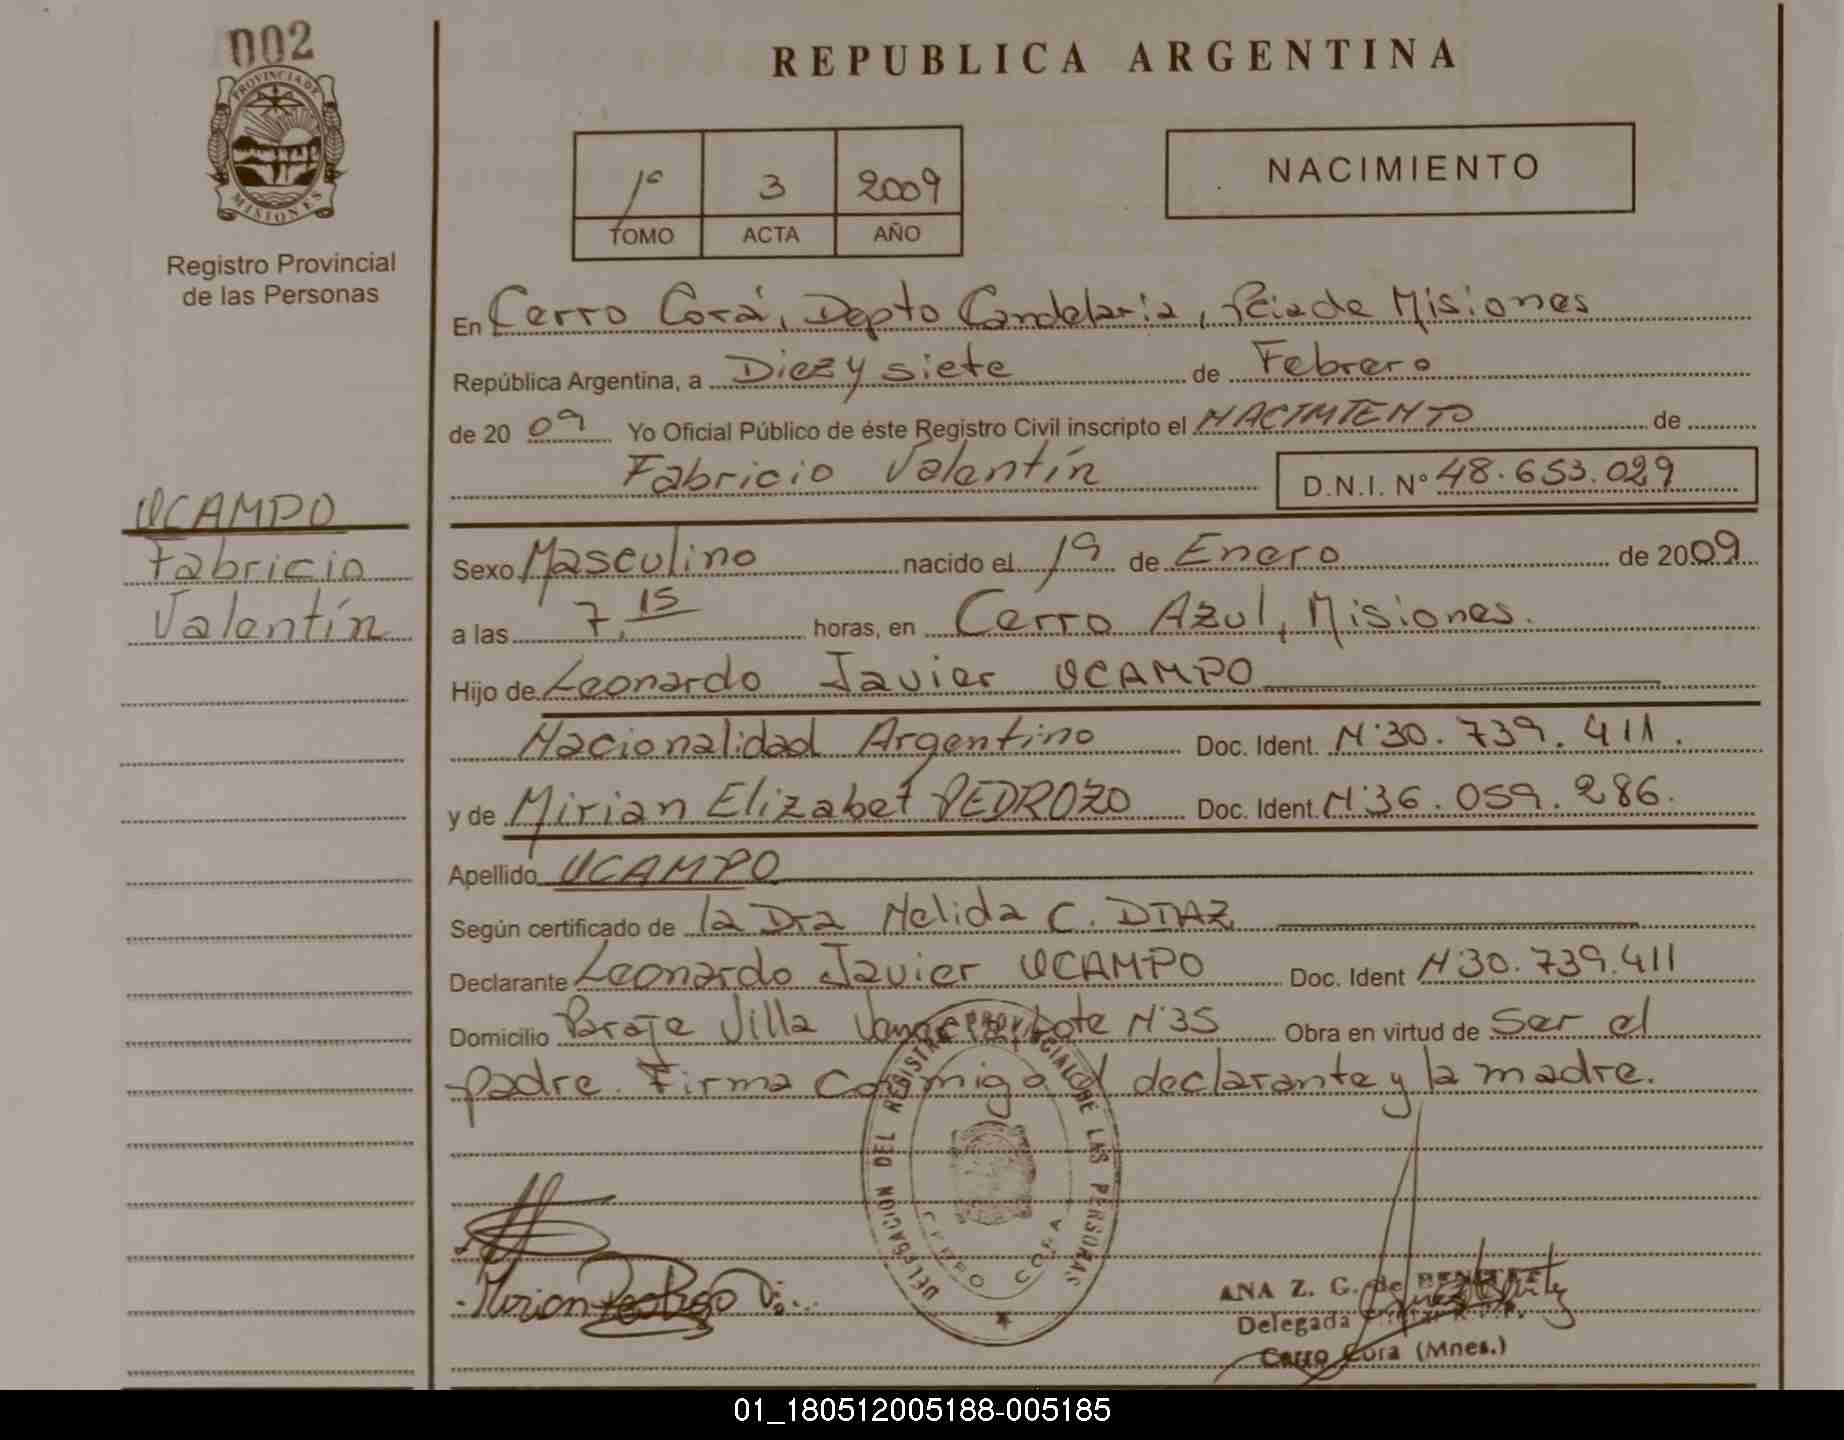 002
PROVINCIA DE
MISIONES
Registro Provincial
de las Personas
REPUBLICA ARGENTINA
1º 3 2009
TOMO ACTA AÑO
NACIMIENTO
En Cerro Corá, Depto Candelaria, Pcia de Misiones
República Argentina, a Diez y siete de Febrero
de 20 09 Yo Oficial Público de éste Registro Civil inscripto el NACIMIENTO de
Fabricio Valentín D.N.I. Nº 48.653.029
UCAMPO
Fabricio
Valentín
Sexo Masculino nacido el 19 de Enero de 2009
a las 7,15 horas, en Cerro Azul, Misiones.
Hijo de Leonardo Javier UCAMPO
Nacionalidad Argentino Doc. Ident. Nº30.739.411.
y de Mirian Elizabet PEDROZO Doc. Ident. Nº36.059.286.
Apellido UCAMPO
Según certificado de la Dra Nelida C. DIAZ
Declarante Leonardo Javier UCAMPO Doc. Ident Nº30.739.411
Domicilio Paraje Villa Lote Nº35 Obra en virtud de Ser el
padre. Firma conmigo el declarante y la madre.
DELEGACION DEL REGISTRO PROVINCIAL DE LAS PERSONAS
CERRO CORA
Mirian Pedrozo
ANA Z. G. de BENITEZ
Delegada
Cerro Cora (Mnes.)
01_180512005188-005185